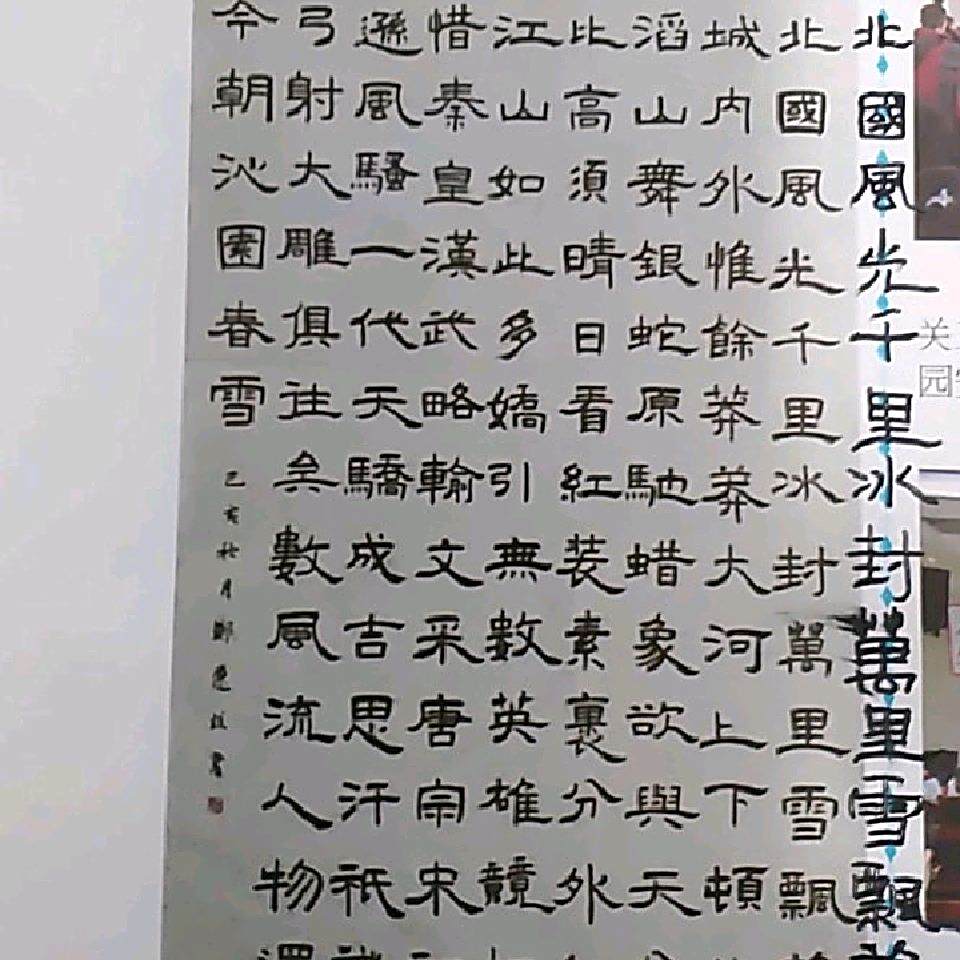 北國風光千里冰封萬里雪飄
北國風光千里冰封萬里雪飄
城內外惟餘莽莽大河上下頓
滔山舞銀蛇原馳蜡象欲與天
比高須晴日看紅装素裹分外
江山如此多嬌引無數英雄競
惜秦皇漢武略輸文采唐宗宋
遜風騷一代天驕成吉思汗祇
弓射大雕俱往矣數風流人物還
今朝沁園春雪
己亥秋月鄭
关
园